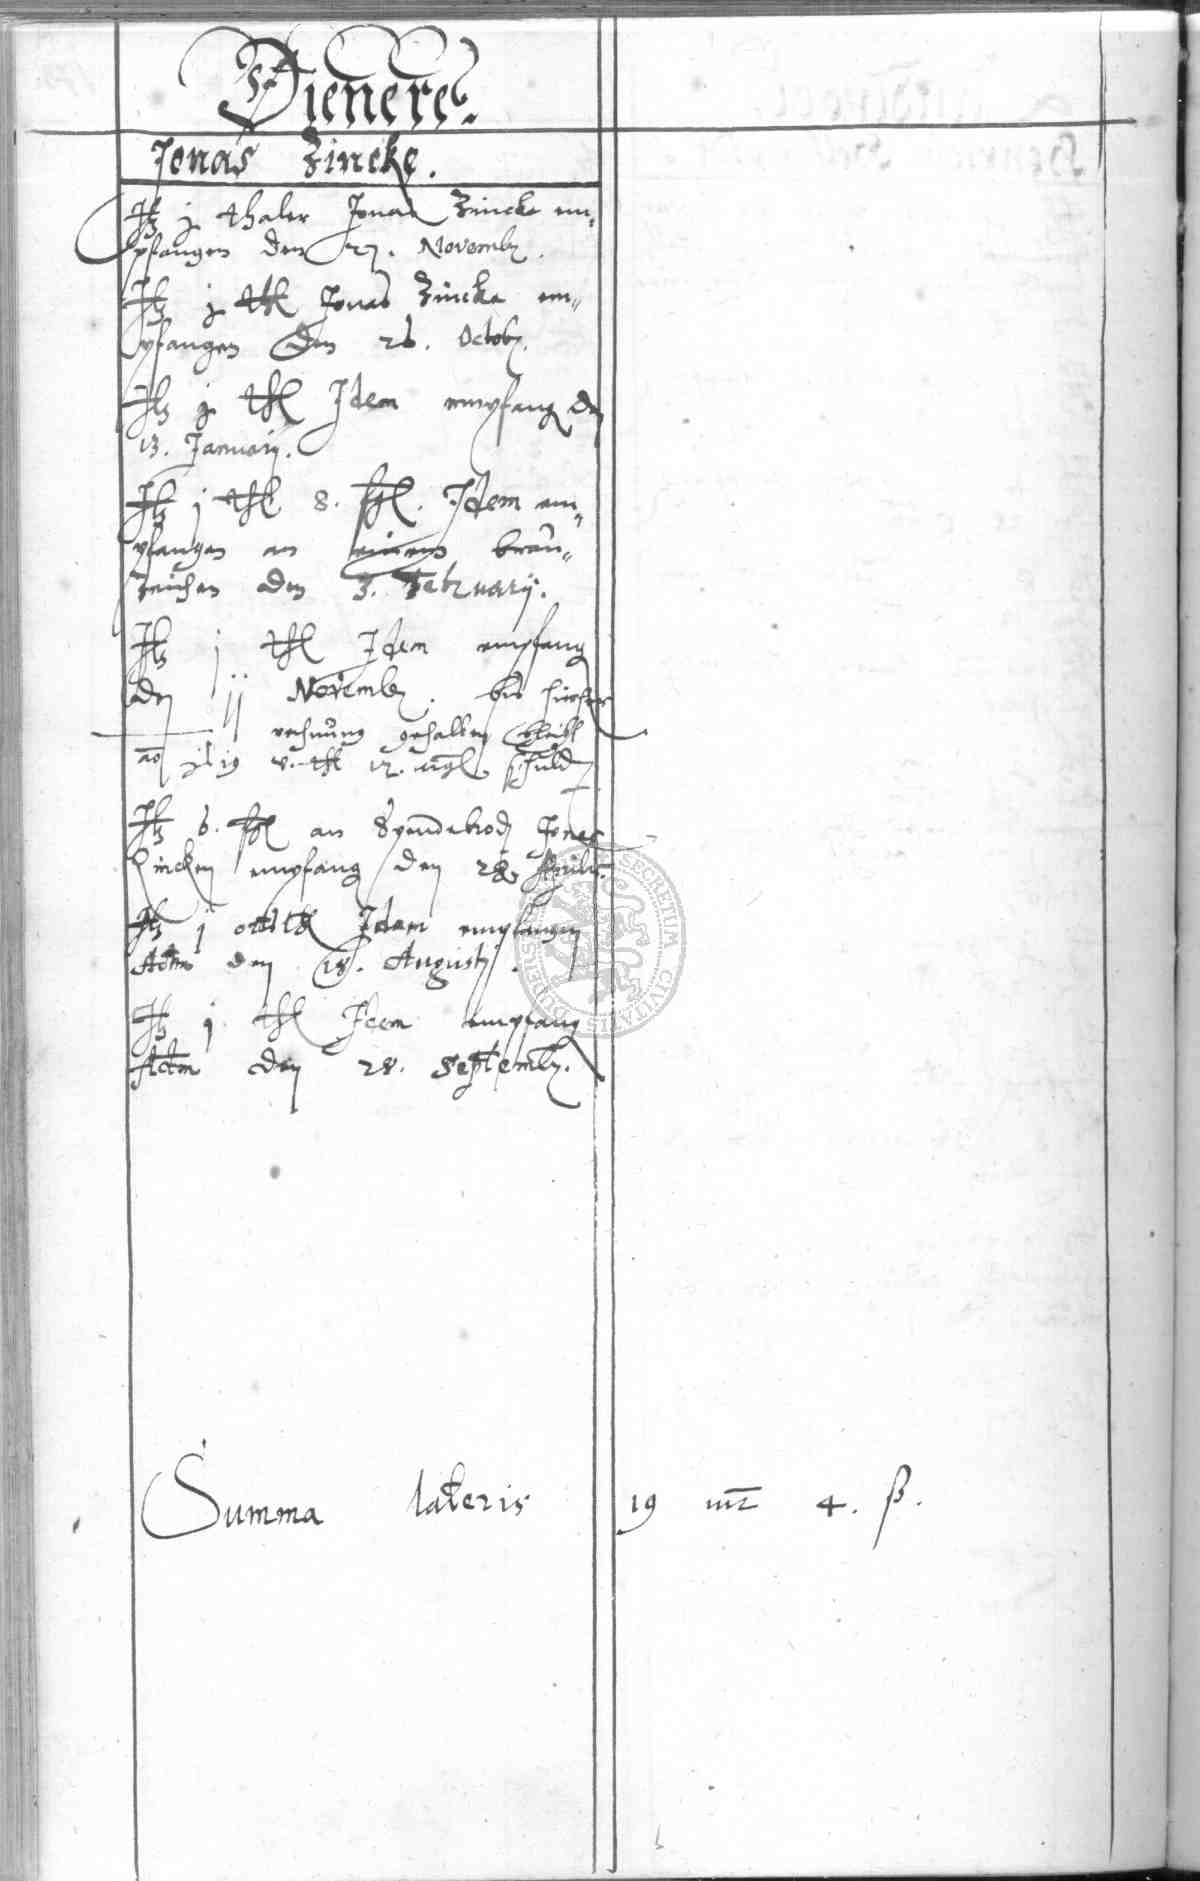 Dienere.
Jonas Zincke.
Itz j thaler Jonas Zincke em¬
pfangen den 27. Novemb.
Itz j thl Jonas Zincke em¬
pfangen den 26. Octob.
Itz j thl Idem empfang den
13. Januarij.
Itz j thl 8. ßl. Idem em¬
pfangen an einem brau¬
zeichen den 3. February.
Itz j thl Idem empfang
den jj Novemb. bis hieher
rechnung gehalten bleibt
ao 19 v. thl 12. mgl schuld
Itz 6. ßl an Spendebrod Jonas
Zincken empfang den 28. Aprilis
Itz j ottsthl Idem empfangen
Actm den 18. Augusti.
Itz j thl Idem empfang
Actm den 28. Septemb.
SECRETUM CIVITATIS
Summa lateris 19 mr 4. ß.